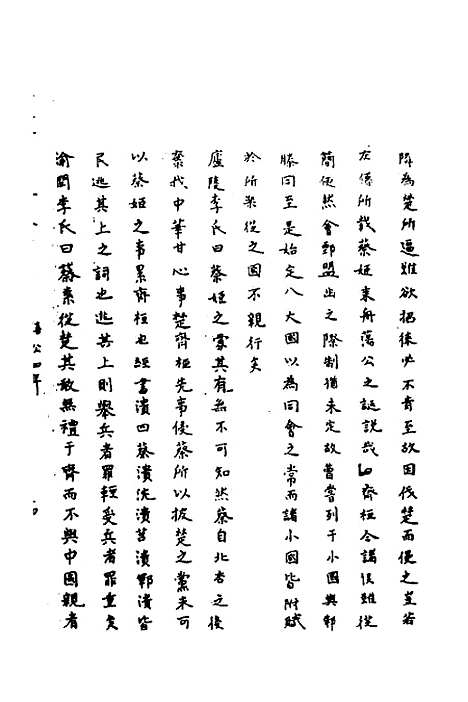 陣為楚所逼雖欲招徠必不肯至故因伐楚而侵之豈若
左傳所載蔡姬乘舟蕩公之誕說哉 齊桓令諸侯雖從
簡便然會鄄盟幽之際制猶未定故曹嘗列于小國與邾
滕同至是始定八大國以為同會之常而諸小國皆附賦
於所來從之國不親行矣
廬陵李氏曰蔡姬之事其有無不可知然蔡自北杏之後
棄我中華甘心事楚齊桓先事侵蔡所以披楚之黨未可
以蔡姬之事累齊桓也經書潰四蔡潰沈潰莒潰鄆潰皆
民逃其上之詞也逃其上則舉兵者罪輕受兵者罪重矣
渝關李氏曰蔡素從楚其敢無禮于齊而不與中國親者
僖公四年